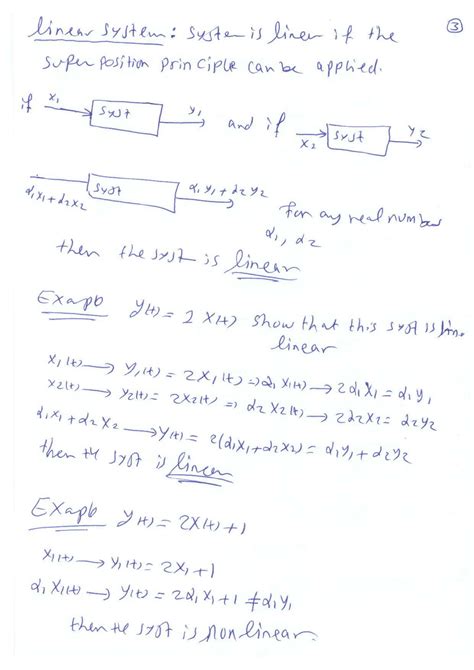 ③
linear system: system is linear if the
super position principle can be applied.
if x₁ → syst → y₁ and if x₂ → syst → y₂
α₁x₁+α₂x₂ → syst → α₁y₁+α₂y₂
for any real number
α₁, α₂
then the syst is linear
Examp y(t) = 2 x(t) show that this syst is lin.
linear
x₁(t) → y₁(t) = 2x₁(t) ⇒ α₁x₁(t) → 2α₁x₁ = α₁y₁
x₂(t) → y₂(t) = 2x₂(t) ⇒ α₂x₂(t) → 2α₂x₂ = α₂y₂
α₁x₁+α₂x₂ → y(t) = 2(α₁x₁+α₂x₂) = α₁y₁+α₂y₂
then the syst is linear
Examp y(t) = 2x(t)+1
x₁(t) → y₁(t) = 2x₁+1
α₁x₁(t) → y(t) = 2α₁x₁+1 ≠ α₁y₁
then the syst is nonlinear.